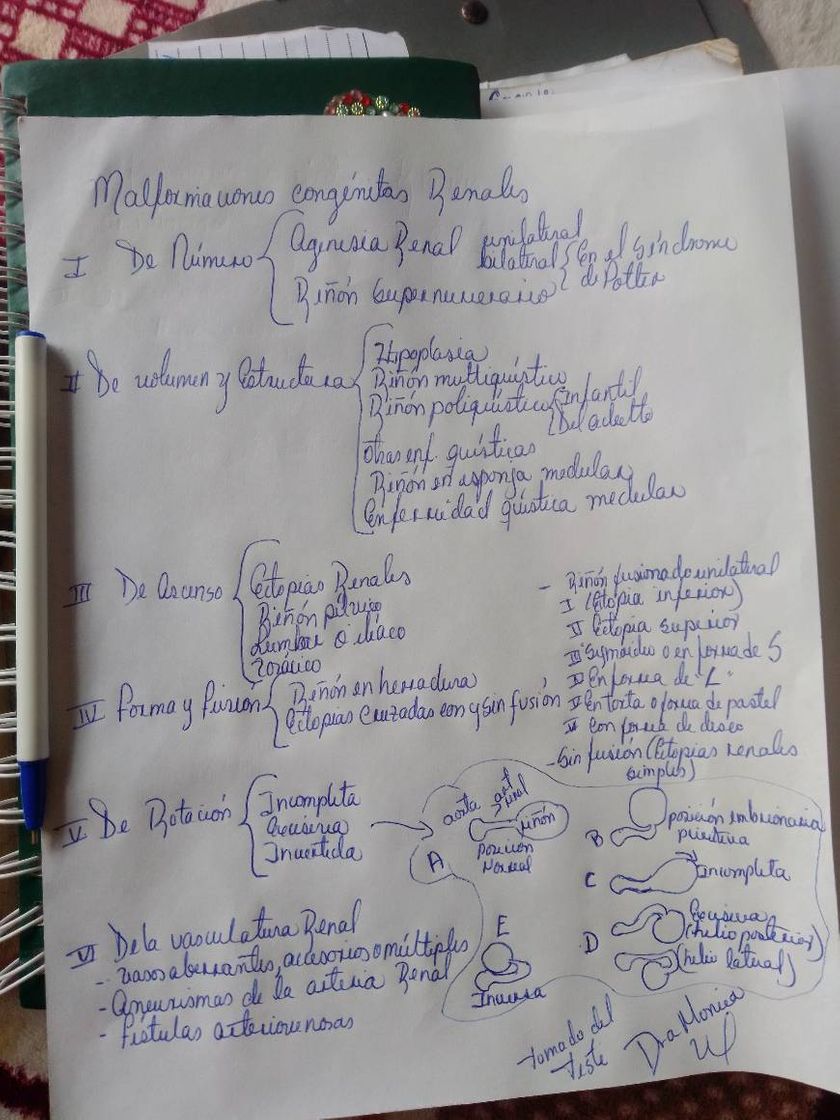 Malformaciones congénitas Renales
I De Número
Agenesia Renal unilateral
bilateral
En el síndrome
de Potter
Riñón Supernumerario
II De volumen y Estructura
Hipoplasia
Riñón multiquístico
Riñón poliquístico
Infantil
Del adulto
otras enf. quísticas
Riñón en esponja medular
Enfermidad quística medular
III De Ascenso
Ectopias Renales
Riñón pélvico
Lumbar o ilíaco
Torácico
IV Forma y Fusión
Riñón en herradura
Ectopias Cruzadas con y sin fusión
- Riñón fusionado unilateral
I (Ectopia inferior)
II Ectopia superior
III Sigmoideo o en forma de S
IV En forma de "L"
V En torta o forma de pastel
VI Con forma de disco
- Sin fusión (Ectopias renales
simples)
V De Rotación
Incompleta
Excesiva
Invertida
A
aorta
art
renal
riñón
posición
Normal
B
posición embrionaria
primitiva
C
incompleta
D
Excesiva
(hilio posterior)
(hilio lateral)
E
Inversa
VI De la vasculatura Renal
- Vasos aberrantes, accesorios o múltiples
- Aneurismas de la arteria Renal
- Fístulas arteriovenosas
tomado del
Dra Monica